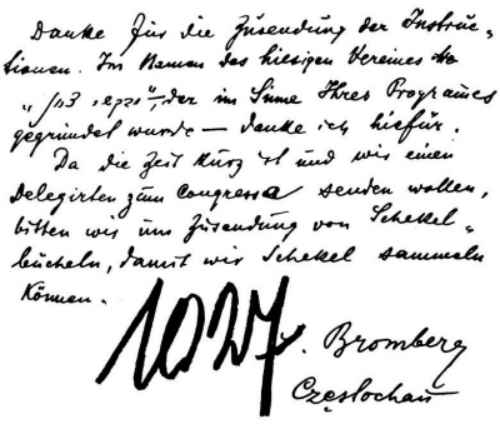 Danke für die Zusendung der Instruc-
tionen. Im Namen des hiesigen Vereines
der im Sinne Ihres Programes
gegründet wurde — danke ich hiefür.
Da die Zeit kurz ist und wir einen
Delegirten zum Congresse senden wollen,
bitten wir um Zusendung von Schekel-
bücheln, damit wir Schekel sammeln
können.
1027
Bromberg
Częstochau